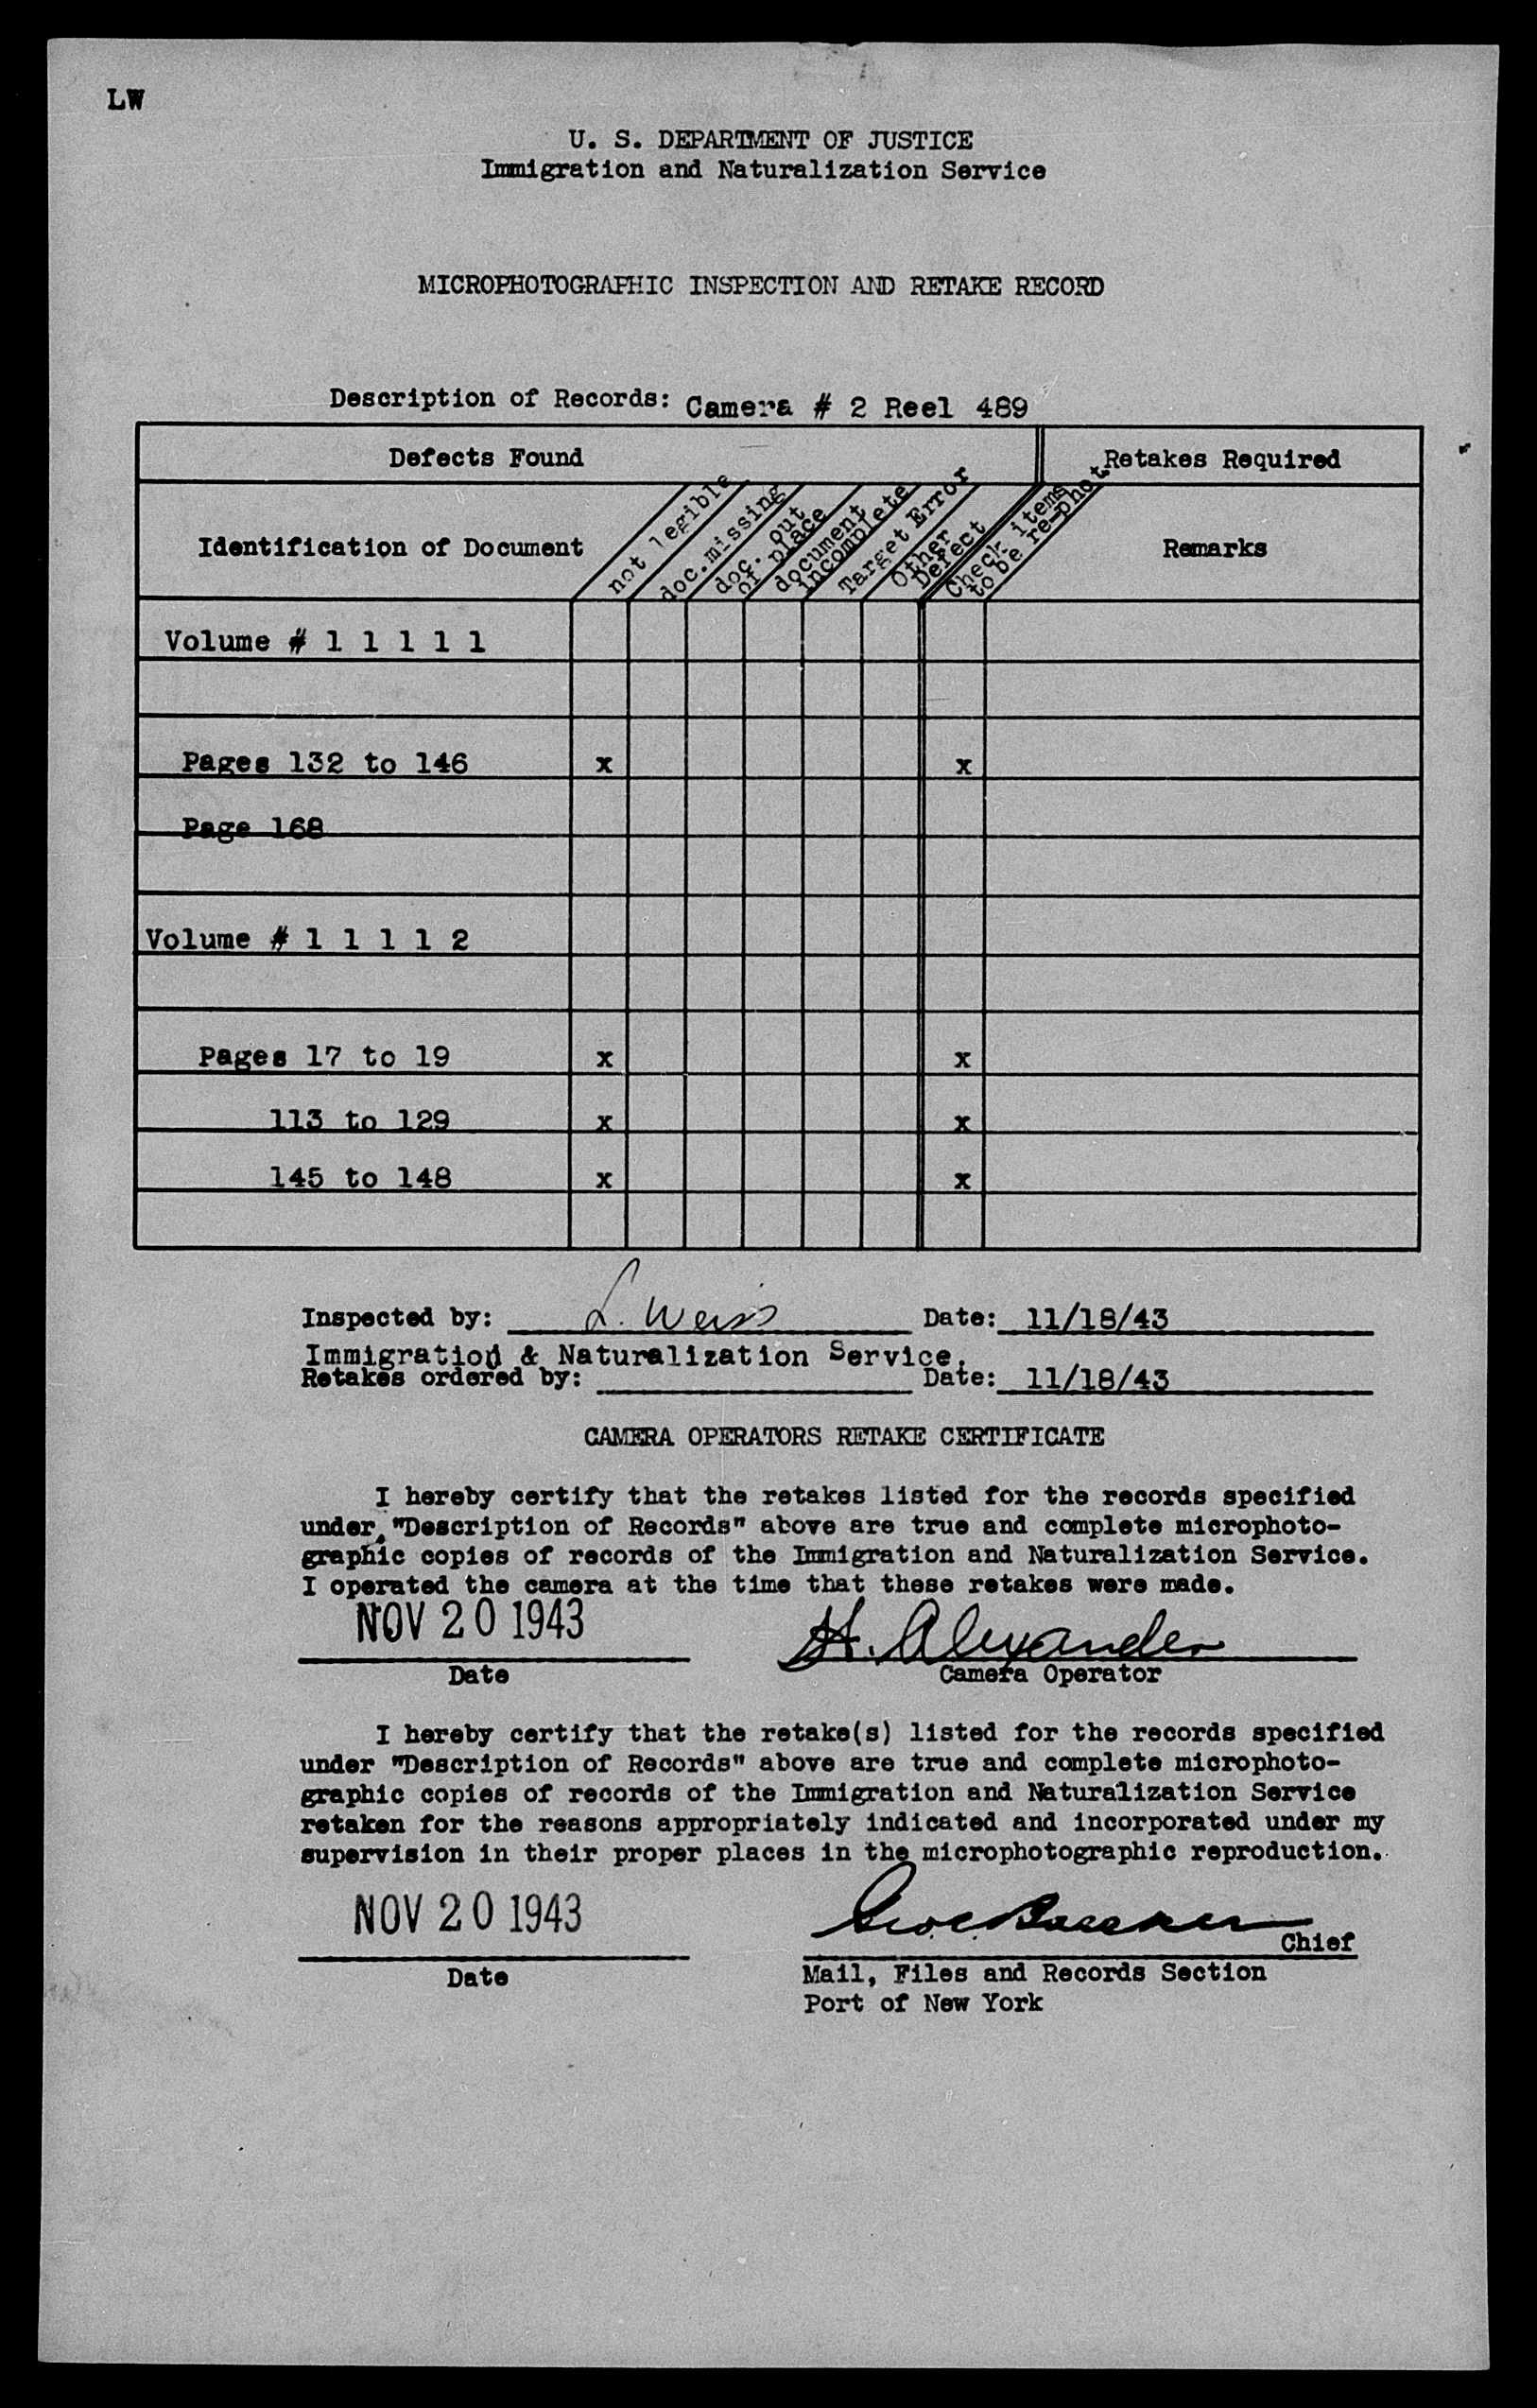 LW
U. S. DEPARTMENT OF JUSTICE
Immigration and Naturalization Service
MICROPHOTOGRAPHIC INSPECTION AND RETAKE RECORD
Description of Records: Camera # 2 Reel 489
Defects Found
Retakes Required
Identification of Document
not legible
doc.missing
doc. out
of place
document
incomplete
Target Error
Other
Defect
Check items
to be re-phot
Remarks
Volume # 1 1 1 1 1
Pages 132 to 146 x x
Page 168
Volume # 1 1 1 1 2
Pages 17 to 19 x x
113 to 129 x x
145 to 148 x x
Inspected by: L. Weiss Date: 11/18/43
Immigration & Naturalization Service.
Retakes ordered by: Date: 11/18/43
CAMERA OPERATORS RETAKE CERTIFICATE
I hereby certify that the retakes listed for the records specified
under "Description of Records" above are true and complete microphoto-
graphic copies of records of the Immigration and Naturalization Service.
I operated the camera at the time that these retakes were made.
NOV 20 1943 H. Alexander
Date Camera Operator
I hereby certify that the retake(s) listed for the records specified
under "Description of Records" above are true and complete microphoto-
graphic copies of records of the Immigration and Naturalization Service
retaken for the reasons appropriately indicated and incorporated under my
supervision in their proper places in the microphotographic reproduction.
NOV 20 1943
Chief
Date
Mail, Files and Records Section
Port of New York